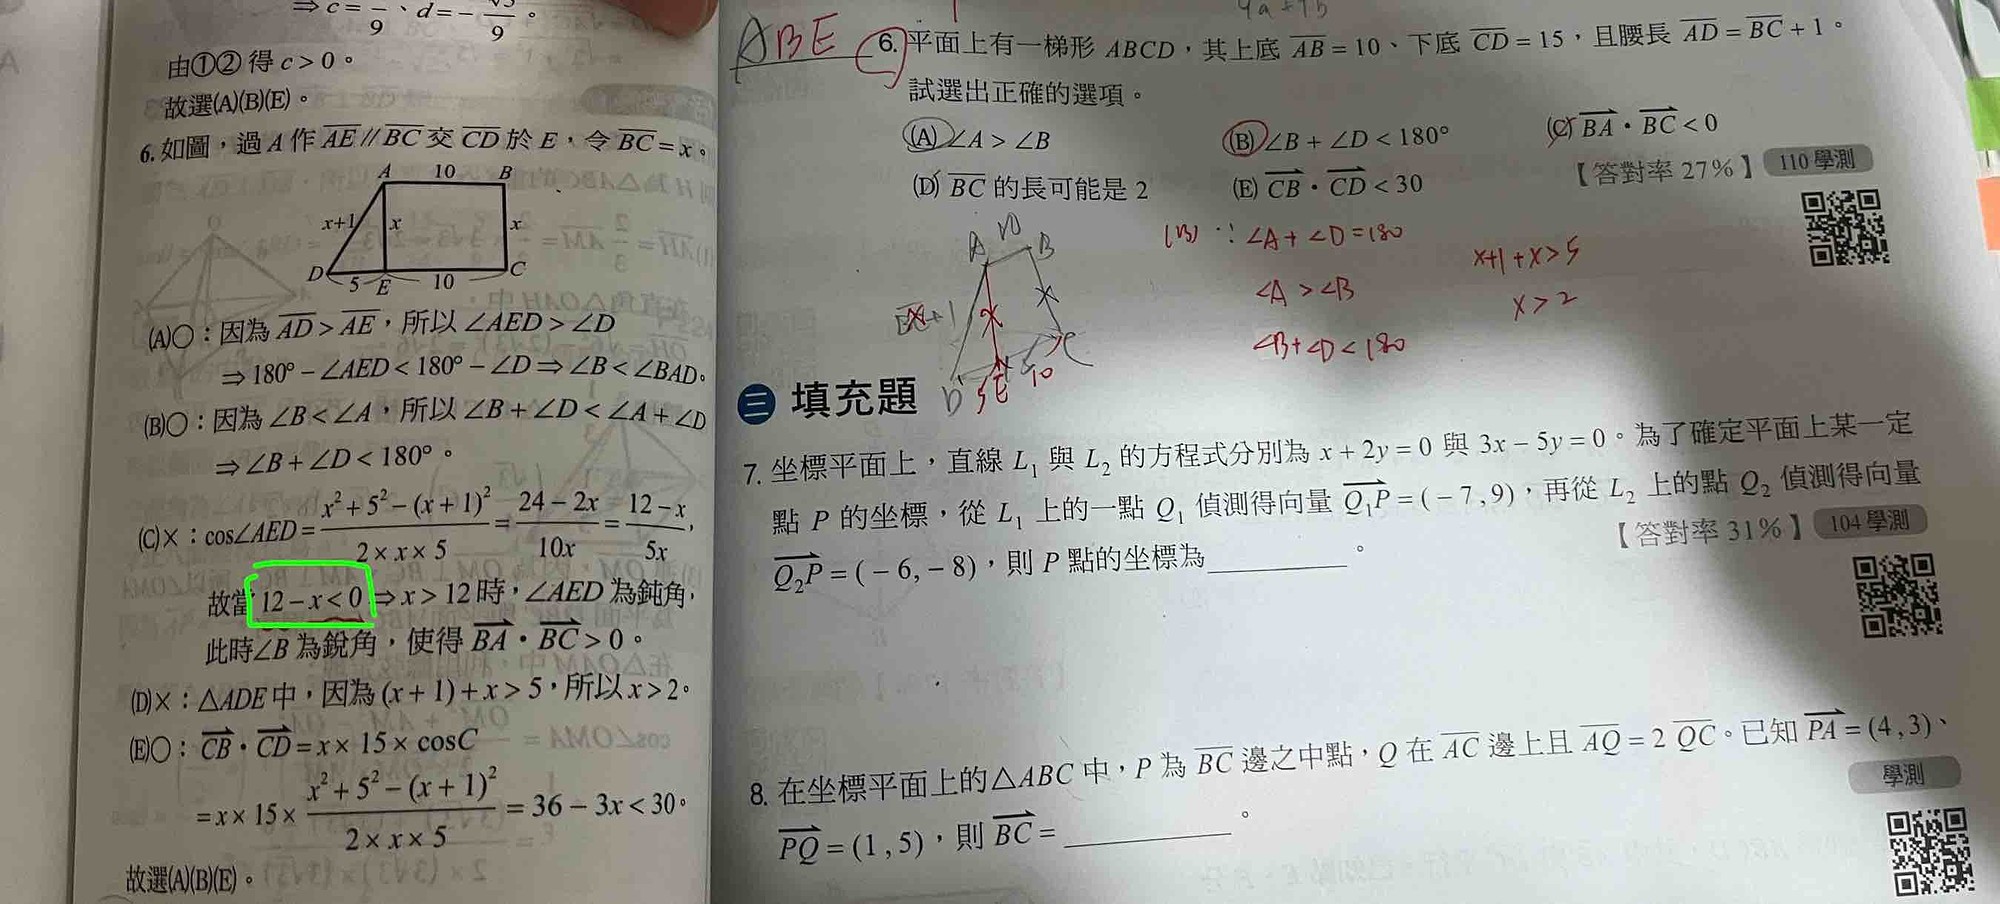 ⇒ c = /9、d = - √3/9。
由①②得 c > 0。
故選(A)(B)(E)。
6. 如圖，過 A 作 AE // BC 交 CD 於 E，令 BC = x。
A 10 B
x+1 x x
D 5 E 10 C
(A)○：因為 AD > AE，所以 ∠AED > ∠D
⇒ 180° - ∠AED < 180° - ∠D ⇒ ∠B < ∠BAD。
(B)○：因為 ∠B < ∠A，所以 ∠B + ∠D < ∠A + ∠D
⇒ ∠B + ∠D < 180°。
(C)×：cos∠AED = (x² + 5² - (x + 1)²)/(2 × x × 5) = (24 - 2x)/(10x) = (12 - x)/(5x)，
故當 12 - x < 0 ⇒ x > 12 時，∠AED 為鈍角，
此時∠B 為銳角，使得 BA・BC > 0。
(D)×：△ADE 中，因為 (x + 1) + x > 5，所以 x > 2。
(E)○：CB・CD = x × 15 × cosC
= x × 15 × (x² + 5² - (x + 1)²)/(2 × x × 5) = 36 - 3x < 30。
故選(A)(B)(E)。
ABE
6. 平面上有一梯形 ABCD，其上底 AB = 10、下底 CD = 15，且腰長 AD = BC + 1。
試選出正確的選項。
(A) ∠A > ∠B (B) ∠B + ∠D < 180° (C) BA・BC < 0
(D) BC 的長可能是 2 (E) CB・CD < 30 【答對率 27%】 110 學測
(B) ∵ ∠A + ∠D = 180
∠A > ∠B
∠B + ∠D < 180
x+1+x>5
x>2
A 10 B
x+1 x x
D 5 E 10 C
三 填充題
7. 坐標平面上，直線 L₁ 與 L₂ 的方程式分別為 x + 2y = 0 與 3x - 5y = 0。為了確定平面上某一定
點 P 的坐標，從 L₁ 上的一點 Q₁ 偵測得向量 Q₁P = (-7, 9)，再從 L₂ 上的點 Q₂ 偵測得向量
Q₂P = (-6, -8)，則 P 點的坐標為__________。 【答對率 31%】 104 學測
8. 在坐標平面上的△ABC 中，P 為 BC 邊之中點，Q 在 AC 邊上且 AQ = 2 QC。已知 PA = (4, 3)、
PQ = (1, 5)，則 BC = __________。 學測